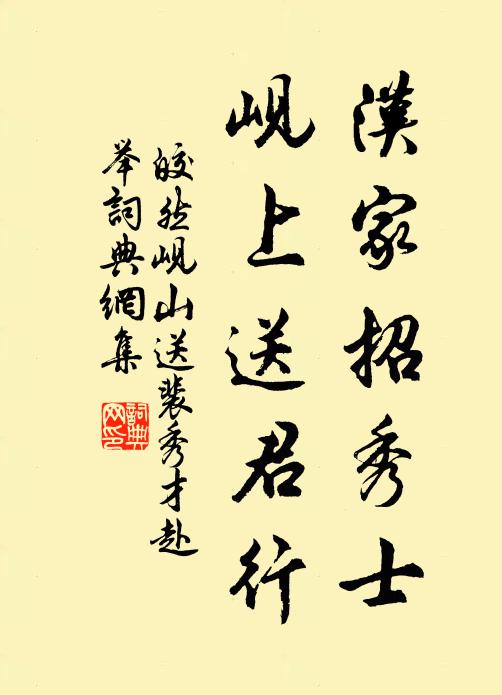 漢家招秀士
峴上送君行
皎然峴山送裴秀才赴
举詞典網集
詞典
网印